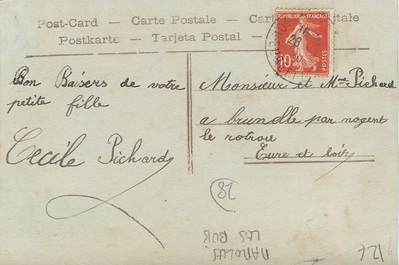 Post-Card — Carte Postale — Carte Postale
Postkarte — Tarjeta Postal —
REPUBLIQUE FRANÇAISE
10
POSTES
Bon Baisers de votre
petite fille
Cecile Pichard
Monsieur et Mme Pichard
a brunelle par nogent
le rotrou
Eure et loir
28
MAROLLES
LES BUIS
124